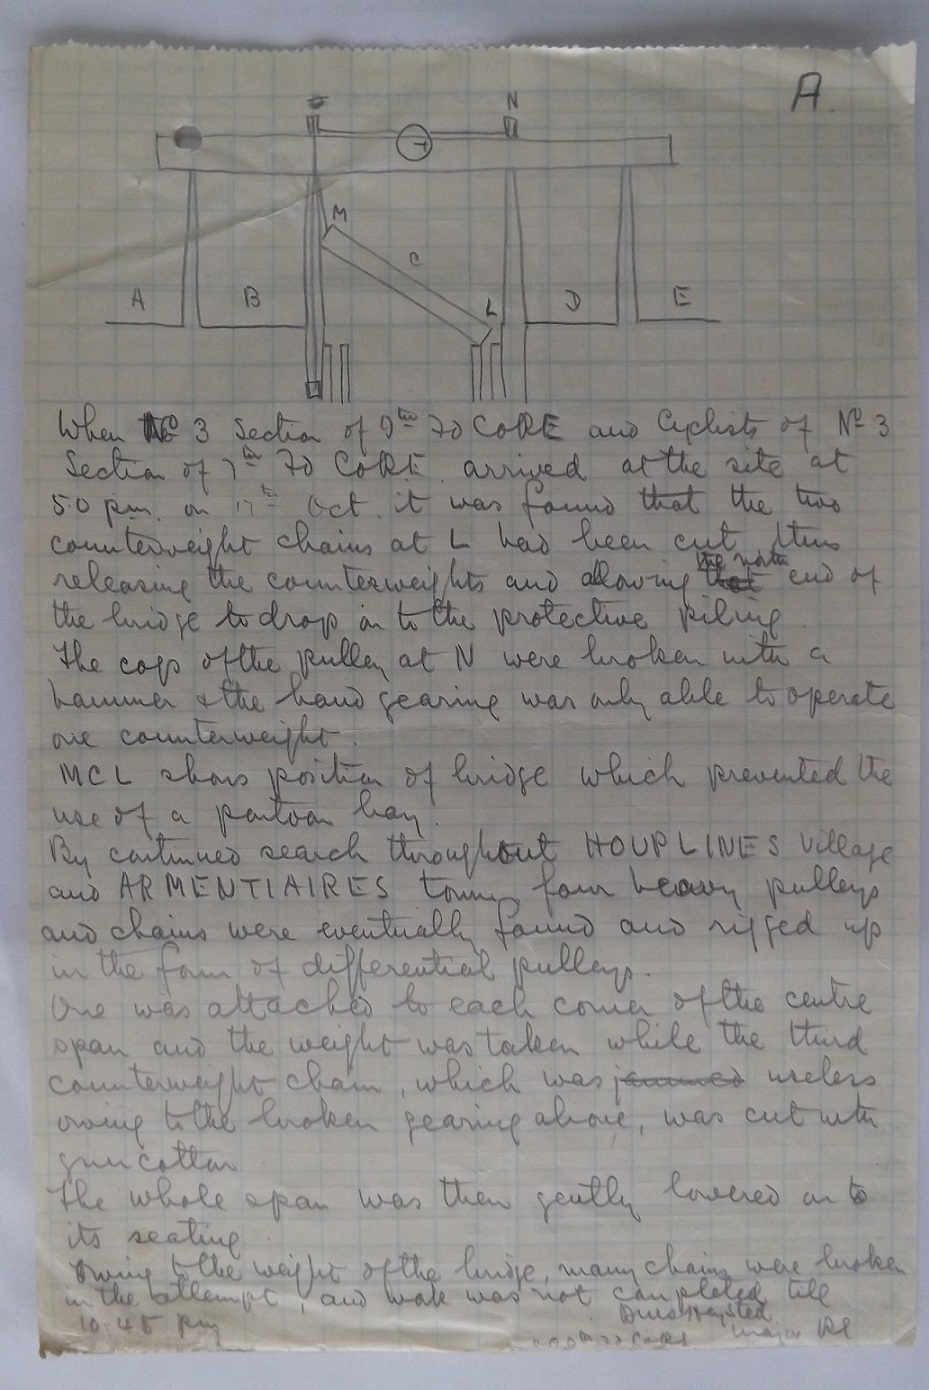 A.
N
M
C
L
A B D E
When No 3 Section of 9th Fd Co RE and Cyclists of No 3
Section of 7th Fd Co RE arrived at the site at
5.0 pm. on 17th Oct. it was found that the two
counterweight chains at L had been cut thus
releasing the counterweights and allowing the north end of
the bridge to drop on to the protective piling
The cogs of the pulley at N were broken with a
hammer & the hand gearing was only able to operate
one counterweight.
MCL shows position of bridge which prevented the
use of a pontoon bay.
By continued search throughout HOUPLINES village
and ARMENTIAIRES town, four heavy pulleys
and chains were eventually found and rigged up
in the form of differential pulleys.
One was attached to each corner of the centre
span and the weight was taken while the third
counterweight chain, which was jammed useless
owing to the broken gearing above, was cut with
gun cotton
The whole span was then gently lowered on to
its seating
Owing to the weight of the bridge, many chains were broken
in the attempt, and work was not completed till
10.45 pm
Major RE